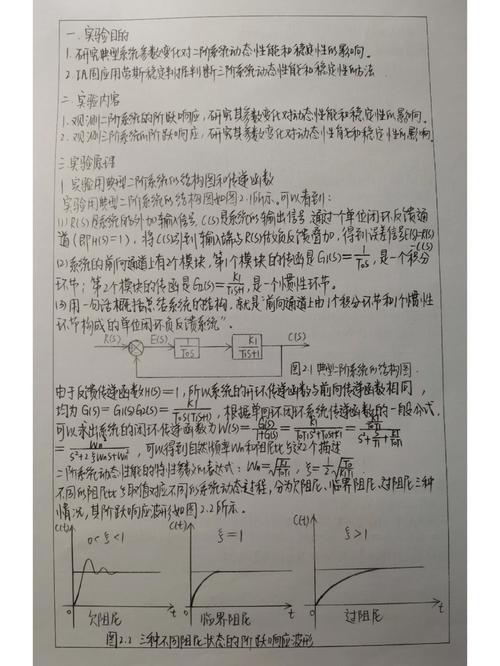 一.实验目的
1.研究典型系统参数变化对二阶系统动态性能和稳定性的影响。
2.巩固应用劳斯稳定判据判断三阶系统动态性能和稳定性的方法
二.实验内容
1.观测二阶系统的阶跃响应，研究其参数变化对动态性能和稳定性的影响。
2.观测三阶系统的阶跃响应，研究其参数变化对动态性能和稳定性的影响。
三.实验原理
1.实验用典型二阶系统的结构图和传递函数
实验用典型二阶系统的结构图如图2.1所示。可以看到：
(1)R(S)是系统的外加输入信号，C(S)是系统的输出信号，通过一个单位闭环反馈通
道(即H(S)=1)，将C(S)引到输入端与R(S)做负反馈叠加，得到误差信号E(S)=R(S)
-C(S)
(2)系统的前向通道上有2个模块，第1个模块的传函是G1(S)=1/T0S，是一个积分
环节；第2个模块的传函是G2(S)=K1/(T1S+1)，是一个惯性环节。
(3)用一句话概括总结系统的结构，就是"前向通道上由1个积分环节和1个惯性
环节构成的单位闭环负反馈系统"。
R(S) E(S) 1/T0S K1/(T1S+1) C(S)
图2.1 典型二阶系统的结构图
由于反馈传递函数H(S)=1，所以系统的开环传递函数与前向传递函数相同，
均为G(S)=G1(S)G2(S)=K1/(T0S(T1S+1))，根据单回环闭环系统传递函数的一般公式，
可以求出系统的闭环传递函数为W(S)=G(S)/(1+G(S))=K1/(T0T1S²+T0S+K1)=
=Wn²/(S²+2ξWnS+Wn²)，可以得到自然频率Wn和阻尼比ξ这2个描述
二阶系统动态性能的特性参数的表达式：Wn=√(K1/T0T1)，ξ=1/2√(T0/K1T1)。
不同的阻尼比ξ取值对应不同的系统动态过程，分为欠阻尼、临界阻尼、过阻尼三种
情况，其阶跃响应波形如图2.2所示。
C(t) 0<ξ<1 C(t) ξ=1 C(t) ξ>1
0 t 0 t 0 t
欠阻尼 临界阻尼 过阻尼
图2.2 三种不同阻尼状态的阶跃响应波形